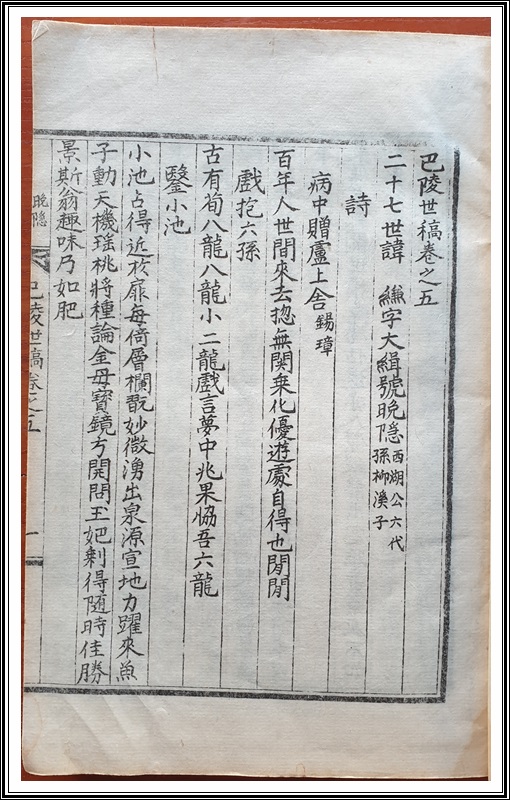 巴陵世稿卷之五
二十七世諱 縑字大緝號晩隐 西湖公六代孫柳溪子
詩
病中贈盧上舍 錫璋
百年人世間來去揔無関乗化優遊處自得也閒閒
戲抱六孫
古有荀八龍八龍小二龍戲言夢中兆果恊吾六龍
鑿小池
小池占得近松扉每倚層欄翫妙微湧出泉源宣地力躍來魚
子動天機瑤桃將種論金母寳鏡方開問玉妃剩得随時佳勝
景斯翁趣味乃如肥
晩隐
巴陵世稿卷之五
一